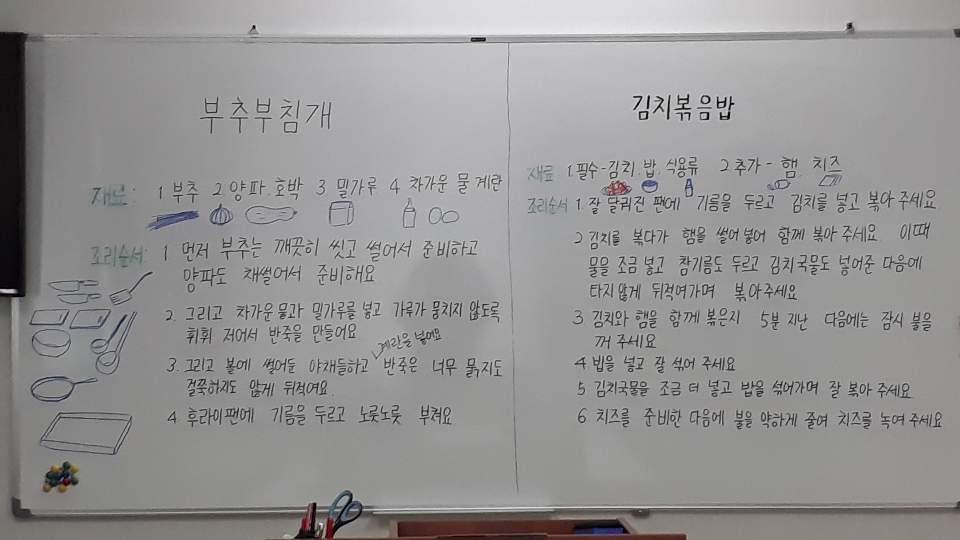 부추부침개
재료: 1 부추 2 양파.호박 3 밀가루 4 차가운 물 계란
조리순서: 1 먼저 부추는 깨끗히 씻고 썰어서 준비하고
양파도 채썰어서 준비해요
2. 그리고 차가운 물과 밀가루를 넣고 가루가 뭉치지 않도록
휘휘 저어서 반죽을 만들어요
계란을 넣어요
3. 그리고 볼에 썰어둔 야채들하고 반죽은 너무 묽지도
걸쭉하지도 않게 뒤적여요
4 후라이팬에 기름을 두르고 노릇노릇 부쳐요
김치볶음밥
재료 1.필수-김치.밥.식용류 2추가- 햄. 치즈
조리순서 1. 잘 달궈진 팬에 기름을 두르고 김치를 넣고 볶아주세요
2 김치를 볶다가 햄을 썰어넣어 함께 볶아주세요 이때
물을 조금 넣고 참기름도 두르고 김치국물도 넣어준 다음에
타지않게 뒤적여가며 볶아주세요
3. 김치와 햄을 함께 볶은지 5분지난 다음에는 잠시 불을
꺼 주세요
4 밥을 넣고 잘 섞어 주세요
5 김치국물을 조금 더 넣고 밥을 섞어가며 잘 볶아주세요
6 치즈를 준비한 다음에 불을 약하게 줄여 치즈를 녹여주세요